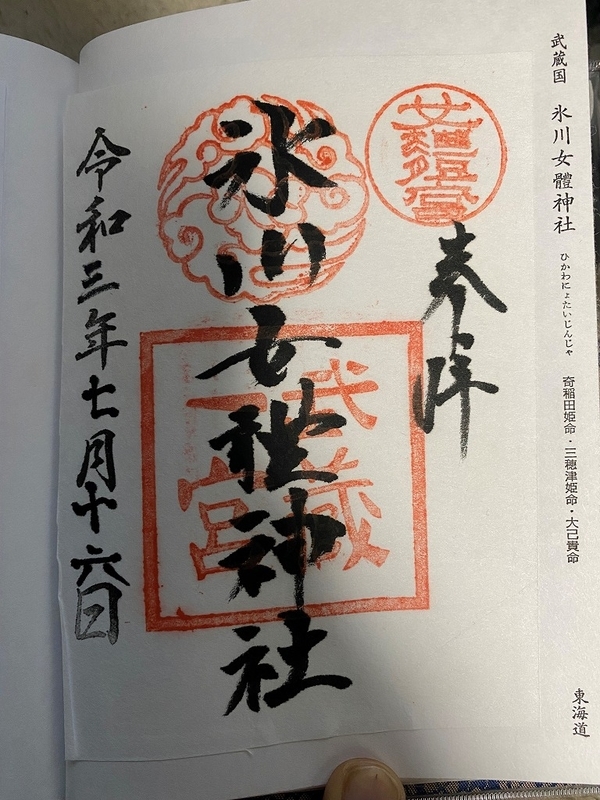 武蔵国 氷川女體神社 ひかわにょたいじんじゃ 奇稲田姫命・三穂津姫命・大己貴命 東海道
奉拝
氷川女體神社
武蔵
一宮
令和三年七月十六日